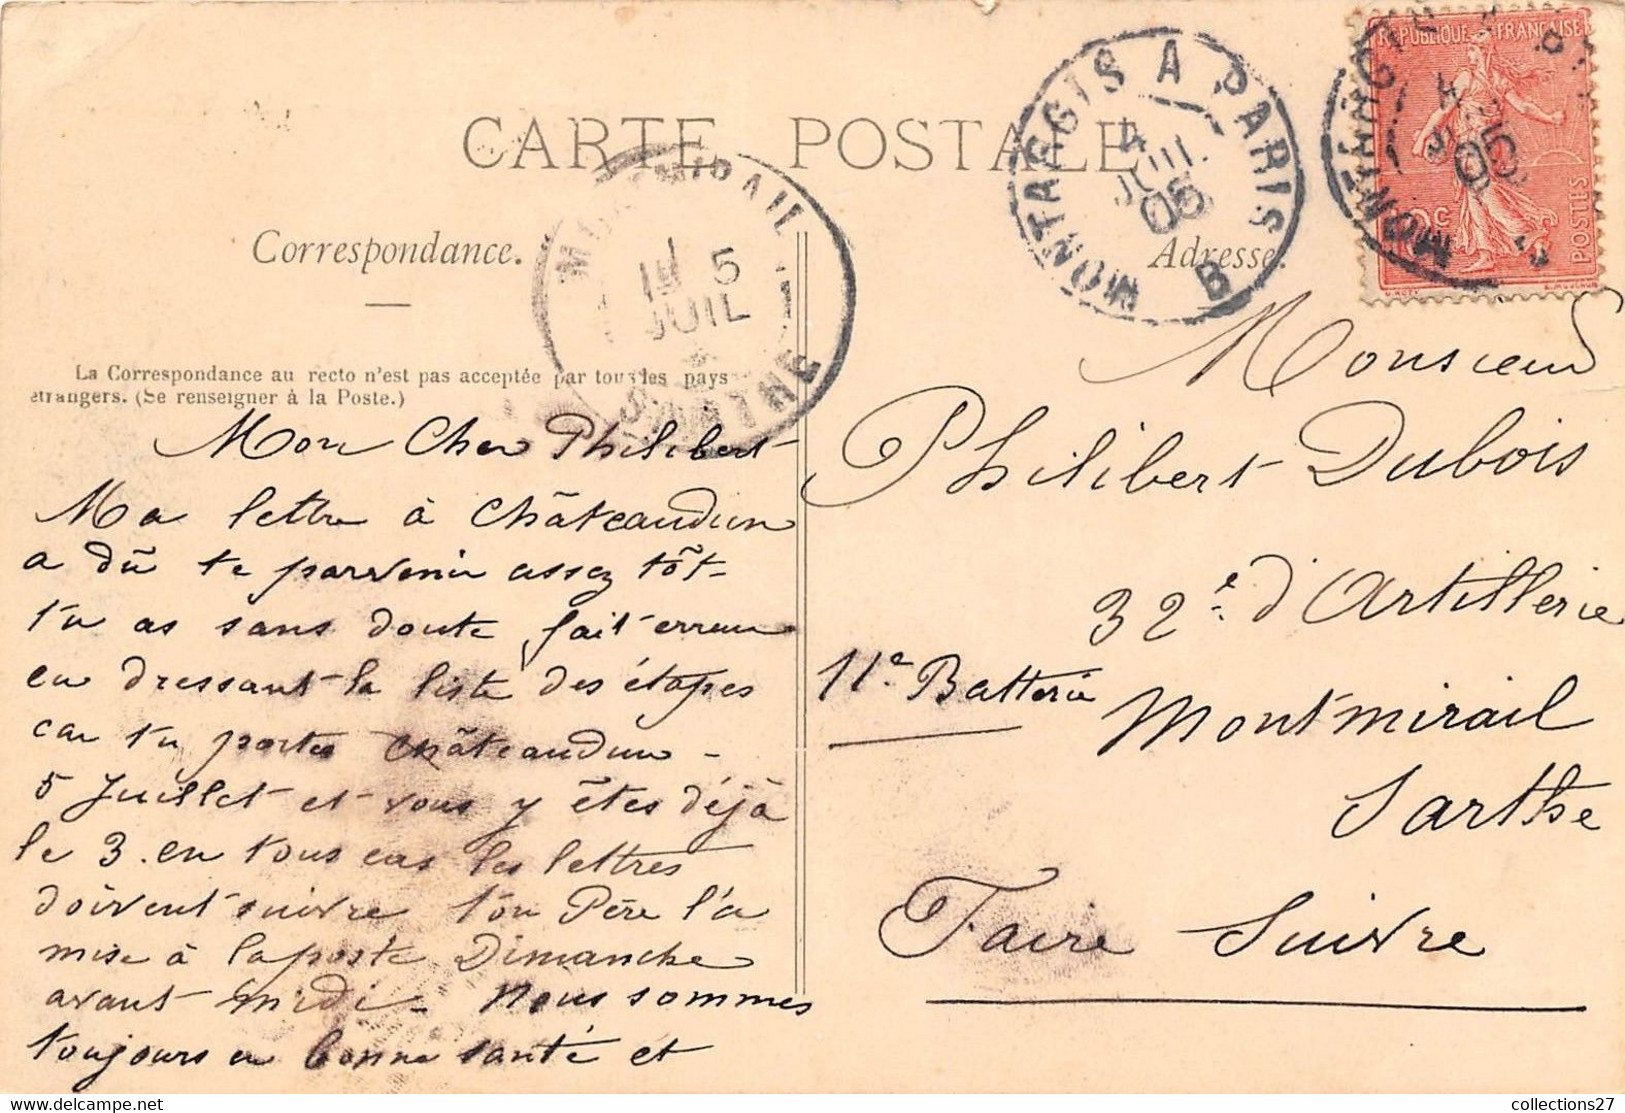 CARTE POSTALE
Correspondance.
Adresse.
MONTARGIS A PARIS
4
JUIL
05
B
MONTMIRAIL
5
JUIL
SARTHE
REPUBLIQUE FRANÇAISE
POSTES
La Correspondance au recto n'est pas acceptée par tous les pays
étrangers. (Se renseigner à la Poste.)
Mon Cher Philibert
Ma lettre à Châteaudun
a dû te parvenir assez tôt-
tu as sans doute fait erreur
en dressant la liste des étapes
car tu portes Châteaudun -
5 Juillet et vous y êtes déjà
le 3. en tous cas les lettres
doivent suivre ton Père l'a
mise à la poste Dimanche
avant midi - Nous sommes
toujours en bonne santé et
Monsieur
Philibert Dubois
32e. d'Artillerie
11e Batterie
Montmirail
Sarthe
Faire Suivre
collections27